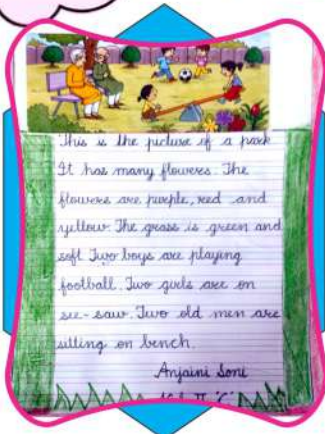 This is the picture of a park
It has many flowers. The
flowers are purple, red and
yellow. The grass is green and
soft. Two boys are playing
football. Two girls are on
see-saw. Two old men are
sitting on bench.
Anjaini Soni